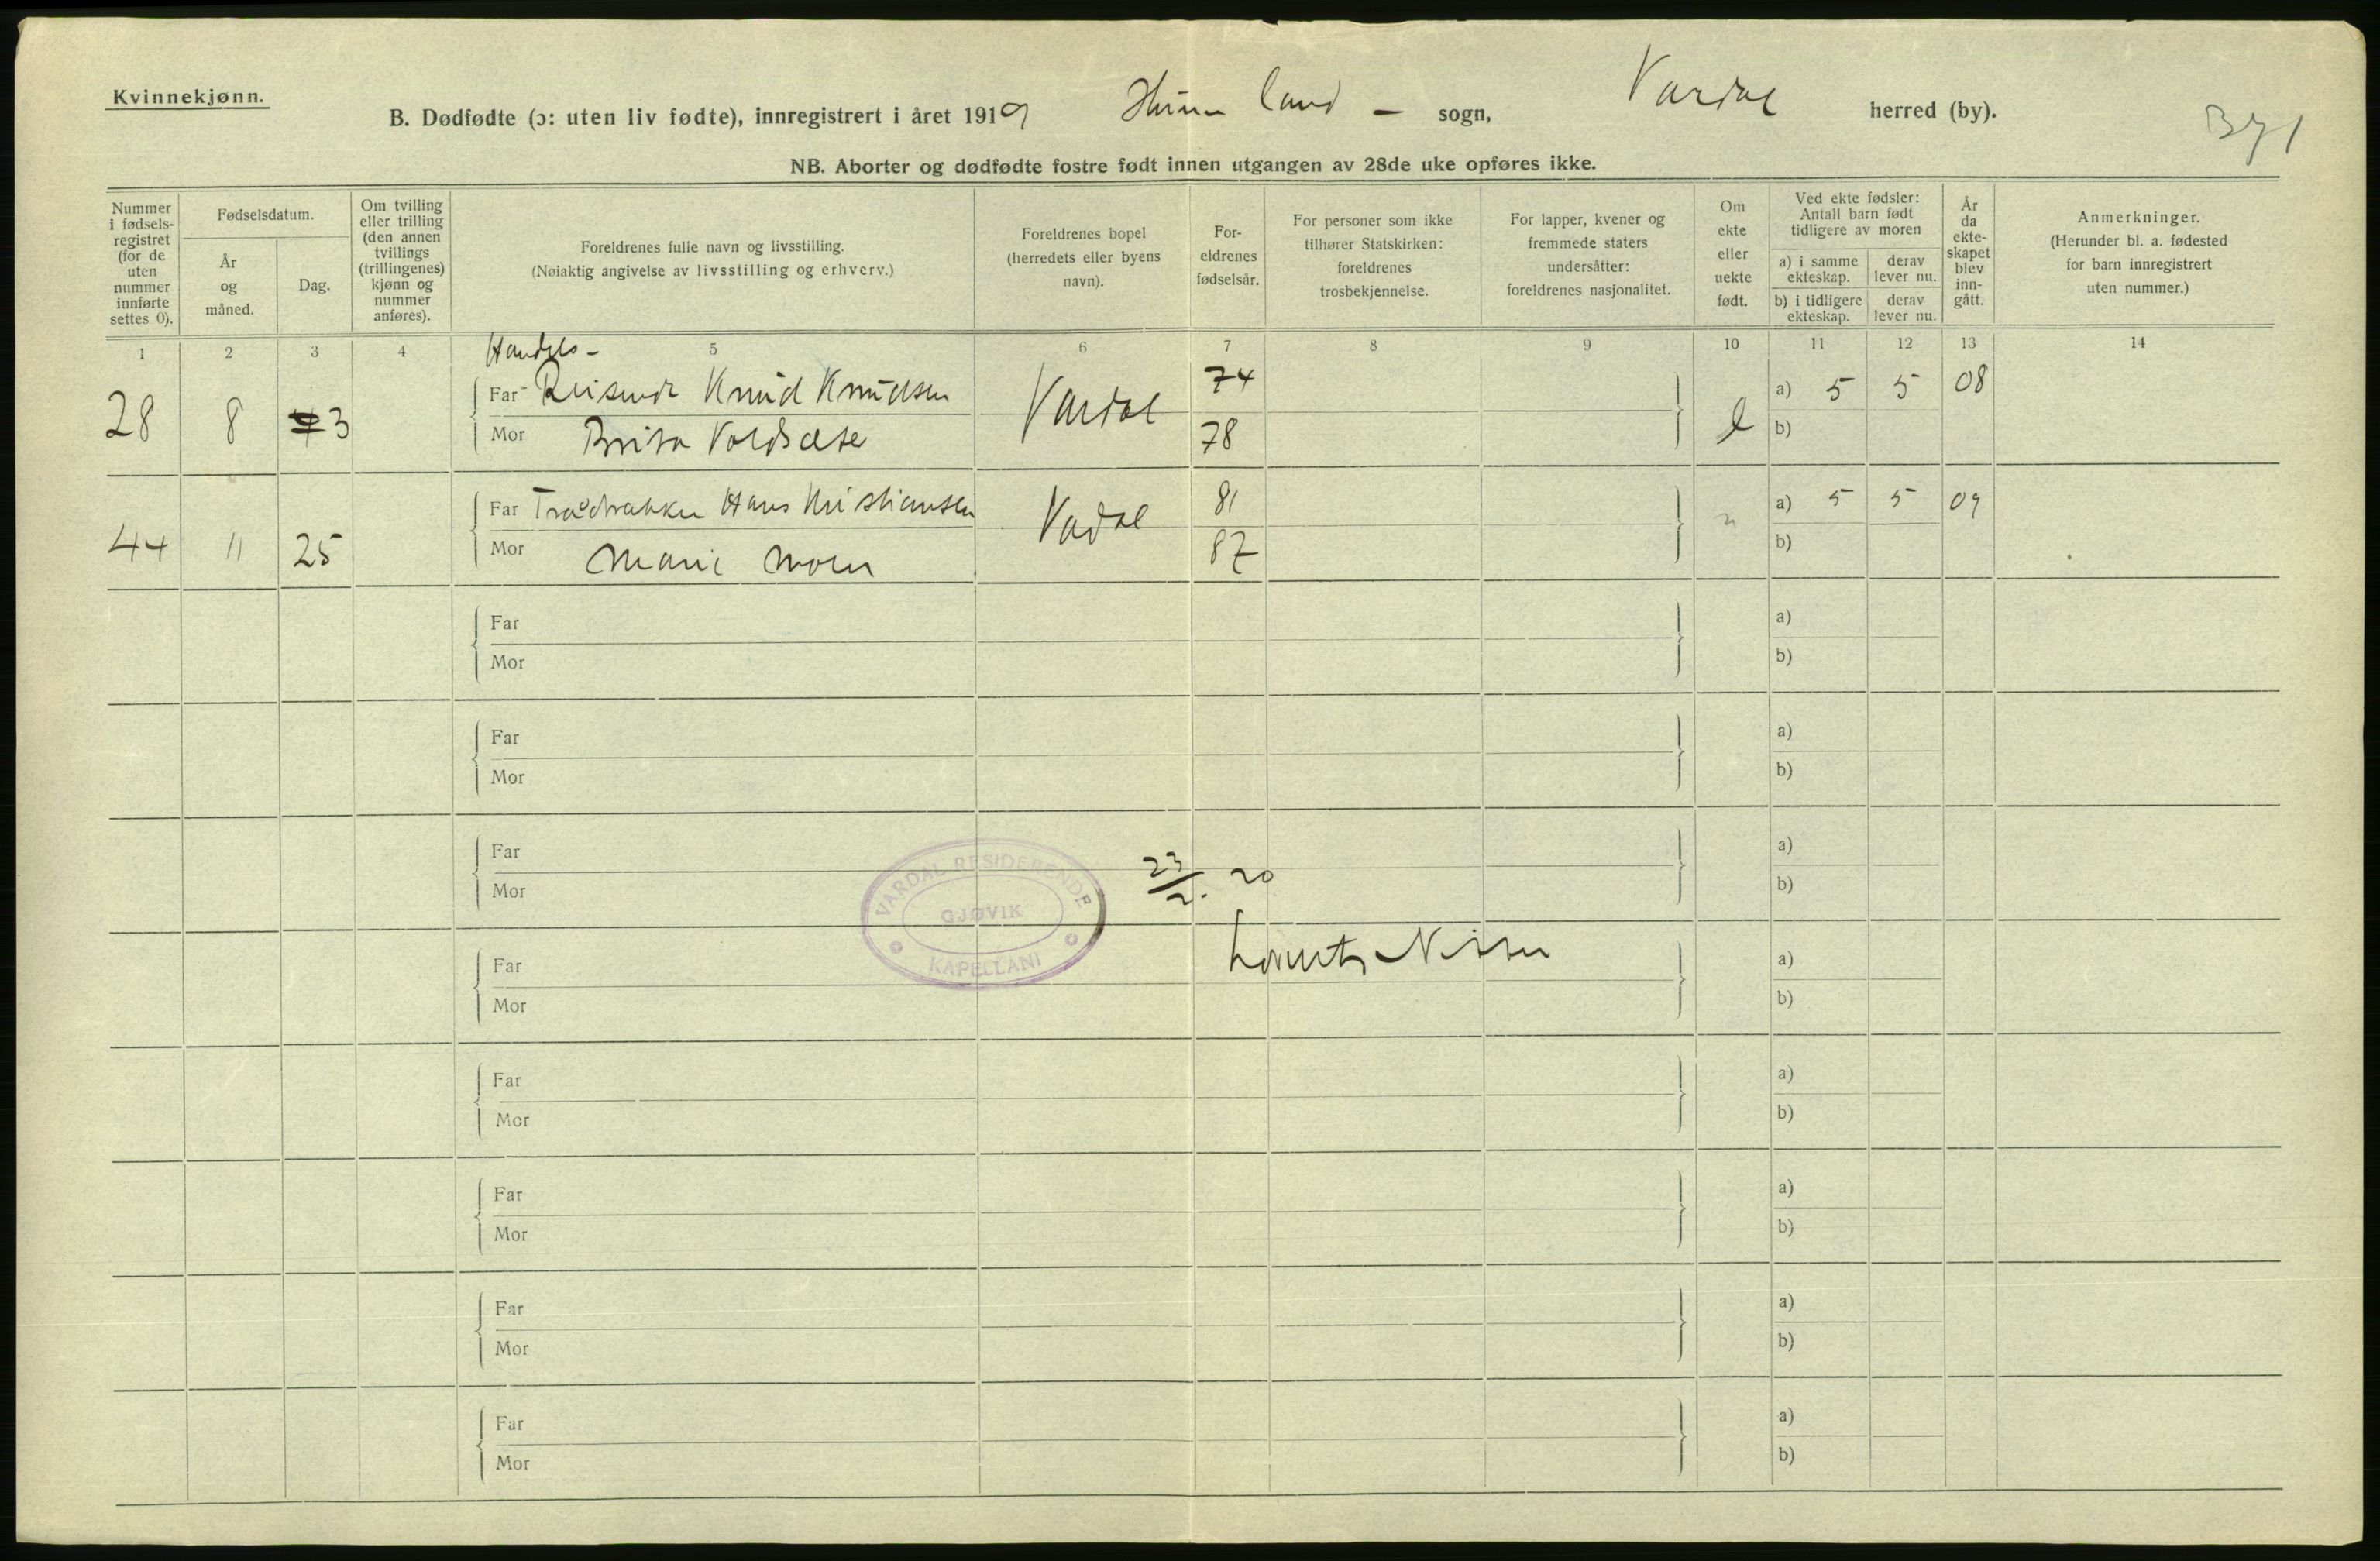 Kvinnekjønn.
B. Dødfødte (ɔ: uten liv fødte), innregistrert i året 1919 Hunn land — sogn, Vardal herred (by).
371
NB. Aborter og dødfødte fostre født innen utgangen av 28de uke opføres ikke.
Nummer i fødsels-registret (for de uten nummer innførte settes 0).
Fødselsdatum.
År og måned.
Dag.
Om tvilling eller trilling (den annen tvillings (trillingenes) kjønn og nummer anføres).
Foreldrenes fulle navn og livsstilling.
(Nøiaktig angivelse av livsstilling og erhverv.)
Foreldrenes bopel (herredets eller byens navn).
For-eldrenes fødselsår.
For personer som ikke tilhører Statskirken: foreldrenes trosbekjennelse.
For lapper, kvener og fremmede staters undersåtter: foreldrenes nasjonalitet.
Om ekte eller uekte født.
Ved ekte fødsler: Antall barn født tidligere av moren
a) i samme ekteskap.
derav lever nu.
b) i tidligere ekteskap.
derav lever nu.
År da ekte-skapet blev inn-gått.
Anmerkninger.
(Herunder bl. a. fødested for barn innregistrert uten nummer.)
1 2 3 4 5 6 7 8 9 10 11 12 13 14
Handels-
28 8 3 Far Reisende Knud Knudsen Vardal 74 e a) 5 5 08
Mor Brita Voldsæte 78 b)
44 11 25 Far Trådtrakker Hans Kristiansen Vadal 81 " a) 5 5 09
Mor Marie Moen 87 b)
Far a)
Mor b)
Far a)
Mor b)
Far a)
Mor b)
VARDAL RESIDERENDE KAPELLANI
GJØVIK
23/2. 20
Far a)
Mor b)
Lorentz Nissen
Far a)
Mor b)
Far a)
Mor b)
Far a)
Mor b)
Far a)
Mor b)